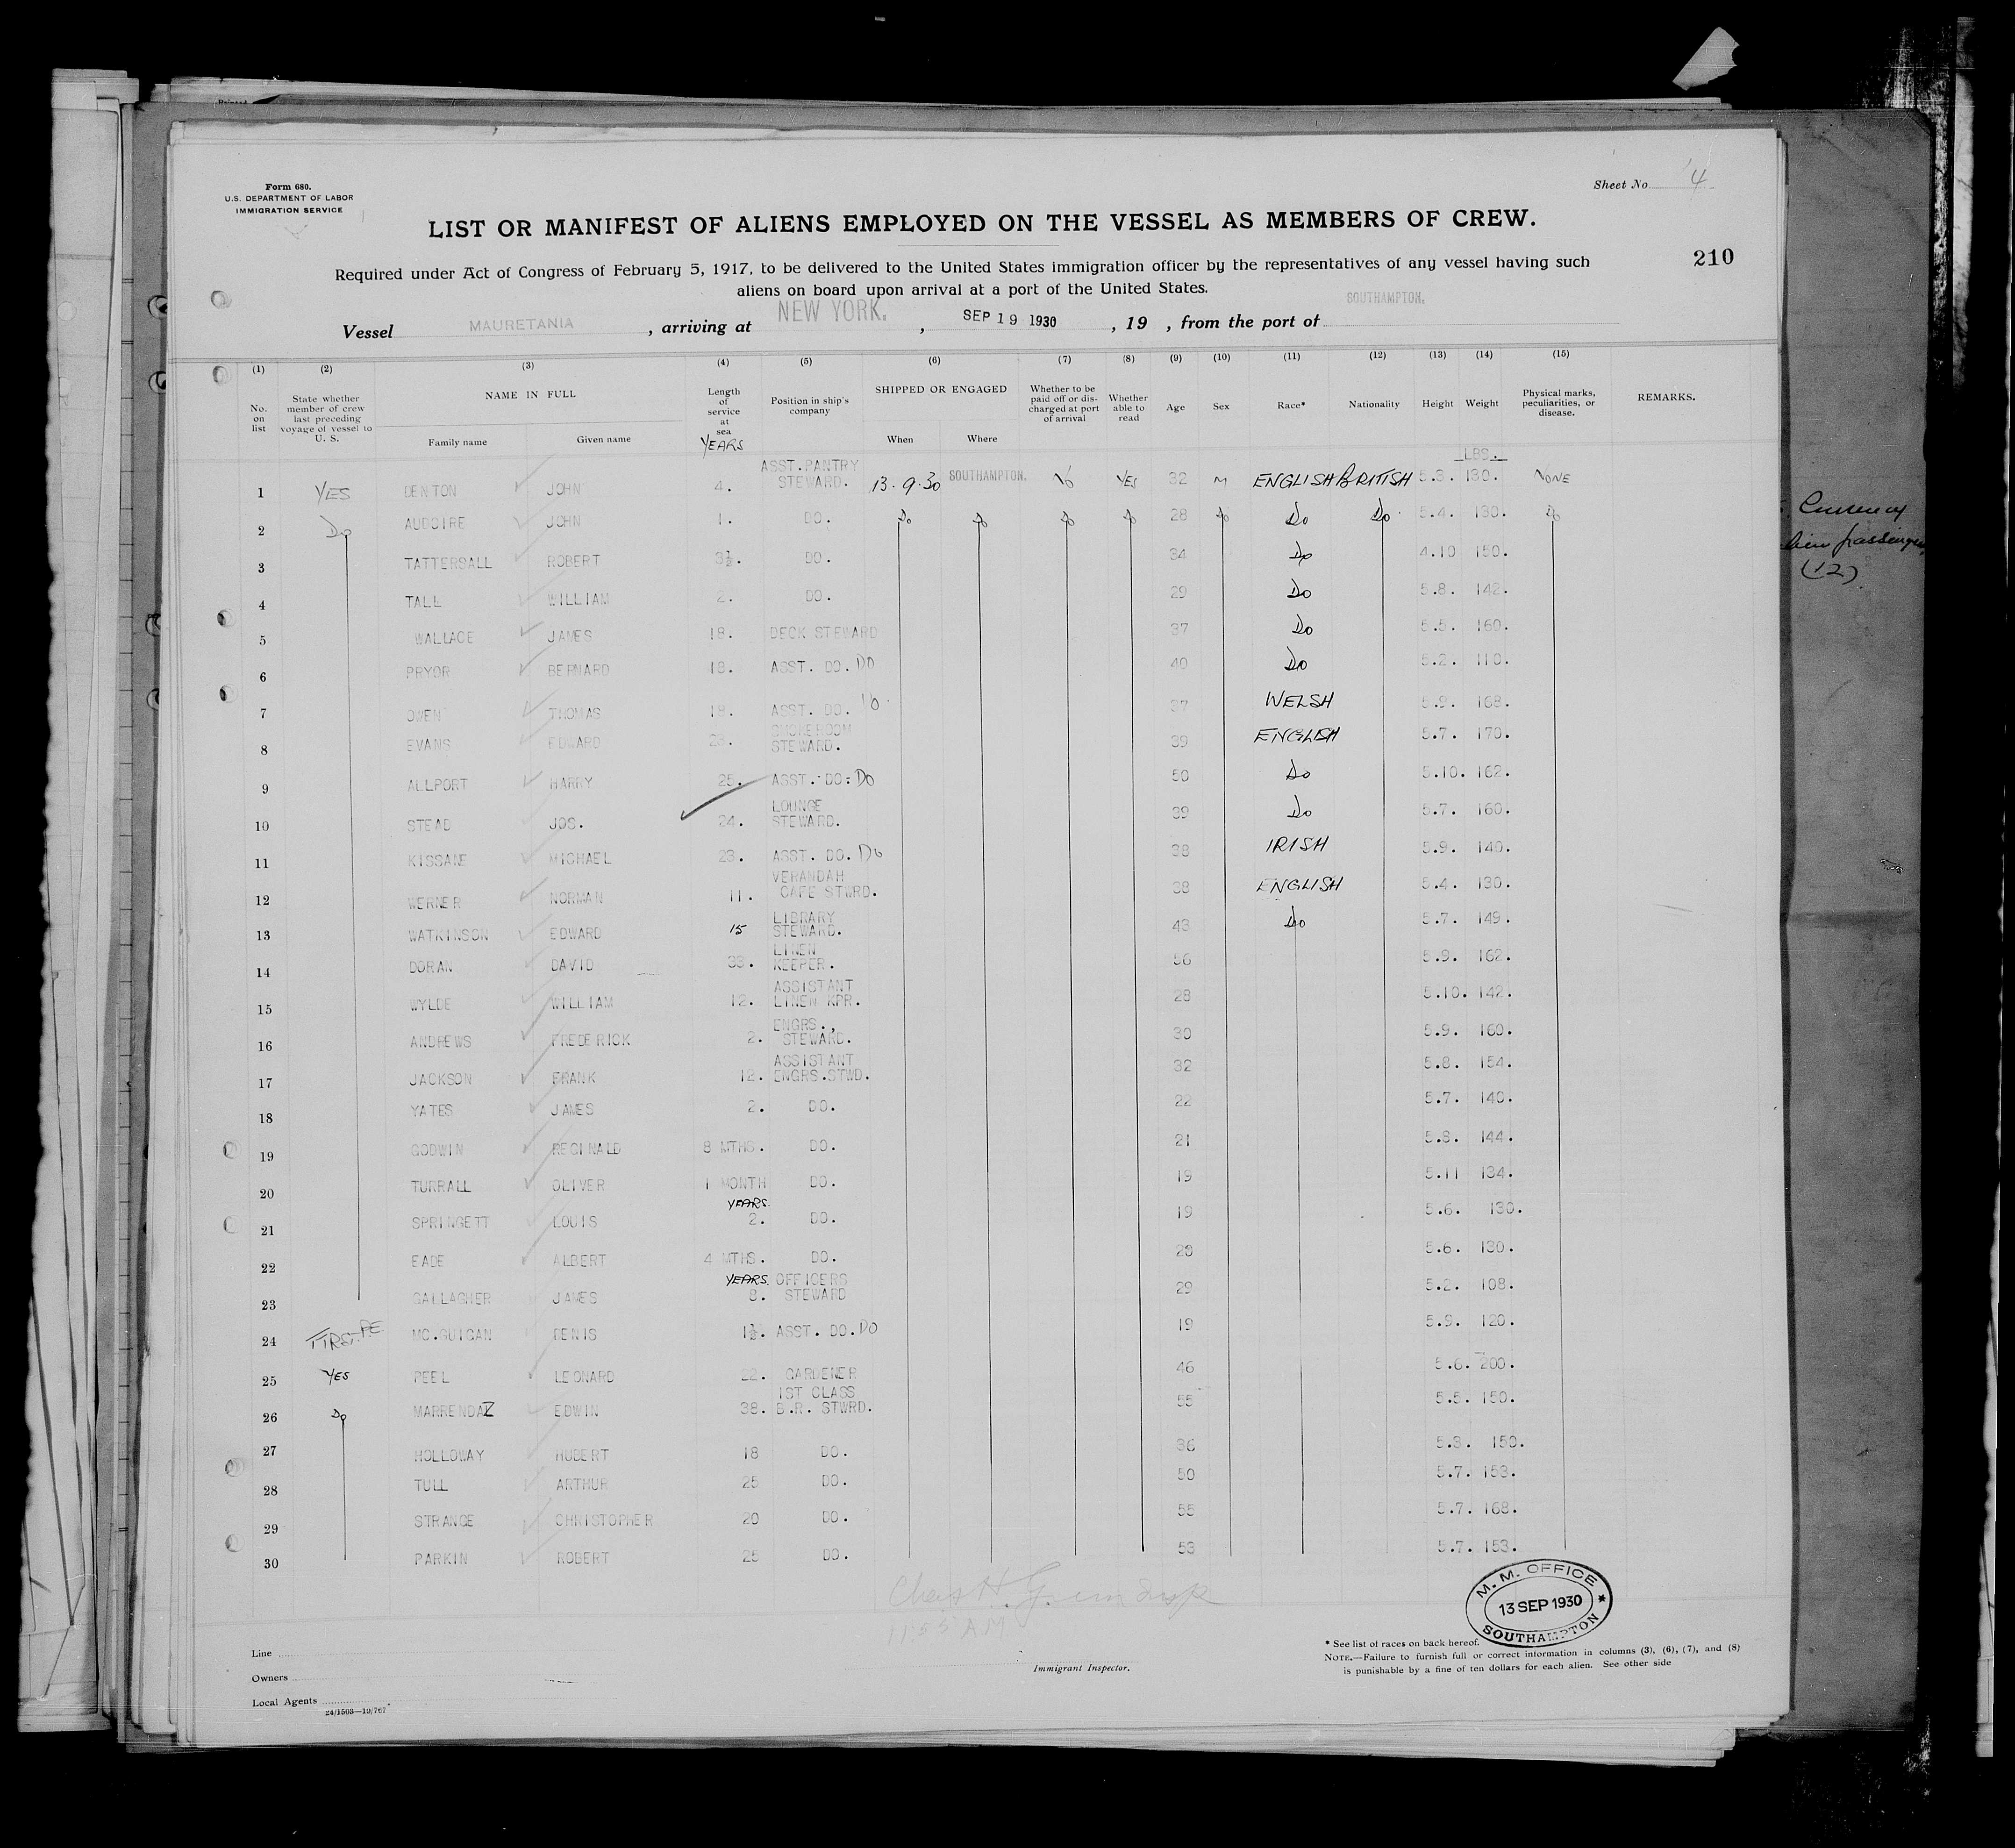 Form 680.
U.S. DEPARTMENT OF LABOR
IMMIGRATION SERVICE
Sheet No. 4
LIST OR MANIFEST OF ALIENS EMPLOYED ON THE VESSEL AS MEMBERS OF CREW.
210
Required under Act of Congress of February 5, 1917, to be delivered to the United States immigration officer by the representatives of any vessel having such
aliens on board upon arrival at a port of the United States.
Vessel MAURETANIA, arriving at NEW YORK., SEP 19 1930, 19 , from the port of SOUTHAMPTON.
(1) (2) (3) (4) (5) (6) (7) (8) (9) (10) (11) (12) (13) (14) (15)
No. on list
State whether member of crew last preceding voyage of vessel to U. S.
NAME IN FULL
Family name
Given name
Length of service at sea
YEARS
Position in ship's company
SHIPPED OR ENGAGED
When
Where
Whether to be paid off or discharged at port of arrival
Whether able to read
Age
Sex
Race*
Nationality
Height
Weight
LBS.
Physical marks, peculiarities, or disease.
REMARKS.
1 YES DENTON JOHN 4. ASST. PANTRY STEWARD. 13.9.30 SOUTHAMPTON. No YES 32 M ENGLISH BRITISH 5.3. 130. NONE
2 Do AUDSIRE JOHN 1. DO. Do Do Do Do 28 Do Do Do 5.4. 130. Do
3 TATTERSALL ROBERT 3½. DO. 34 Do 4.10 150.
4 TALL WILLIAM 2. DO. 29 Do 5.8. 142.
5 WALLACE JAMES 18. DECK STEWARD 37 Do 5.5. 160.
6 PRYOR BERNARD 18. ASST. DO. DO 40 Do 5.2. 110.
7 OWEN THOMAS 18. ASST. DO. DO 37 WELSH 5.9. 168.
8 EVANS EDWARD 23. SMOKEROOM STEWARD. 39 ENGLISH 5.7. 170.
9 ALLPORT HARRY 25. ASST. DO. DO 50 Do 5.10. 162.
10 STEAD JOS. 24. LOUNGE STEWARD. 39 Do 5.7. 160.
11 KISSANE MICHAEL 23. ASST. DO. DO 38 IRISH 5.9. 140.
12 WERNER NORMAN 11. VERANDAH CAFE STWRD. 38 ENGLISH 5.4. 130.
13 WATKINSON EDWARD 15 LIBRARY STEWARD. 43 Do 5.7. 149.
14 DORAN DAVID 38. LINEN KEEPER. 56 5.9. 162.
15 WYLDE WILLIAM 12. ASSISTANT LINEN KPR. 28 5.10. 142.
16 ANDREWS FREDERICK 2. ENGRS., STEWARD. 30 5.9. 160.
17 JACKSON FRANK 12. ASSISTANT ENGRS.STWD. 32 5.8. 154.
18 YATES JAMES 2. DO. 22 5.7. 140.
19 GODWIN REGINALD 8 MTHS. DO. 21 5.8. 144.
20 TURRALL OLIVER 1 MONTH DO. 19 5.11 134.
21 SPRINGETT LOUIS YEARS 2. DO. 19 5.6. 130.
22 EADE ALBERT 4 MTHS. DO. 20 5.6. 130.
23 GALLAGHER JAMES YEARS 8. OFFICERS STEWARD 29 5.2. 108.
24 FIRST MC.GUIGAN DENIS 1½. ASST. DO. DO 19 5.9. 120.
25 YES PEEL LEONARD 22. GARDENER 46 5.6. 200.
26 Do MARRENDAZ EDWIN 38. 1ST CLASS B.R. STWRD. 55 5.5. 150.
27 HOLLOWAY HUBERT 18 DO. 36 5.8. 150.
28 TULL ARTHUR 25 DO. 50 5.7. 153.
29 STRANGE CHRISTOPHER 20 DO. 55 5.7. 168.
30 PARKIN ROBERT 25 DO. 53 5.7. 153.
11:55 AM
M. M. OFFICE
13 SEP 1930
SOUTHAMPTON
Line
Owners
Local Agents
24/1503—19/767
Immigrant Inspector.
* See list of races on back hereof.
NOTE.—Failure to furnish full or correct information in columns (3), (6), (7), and (8)
is punishable by a fine of ten dollars for each alien. See other side
Currency
passenger
(12)